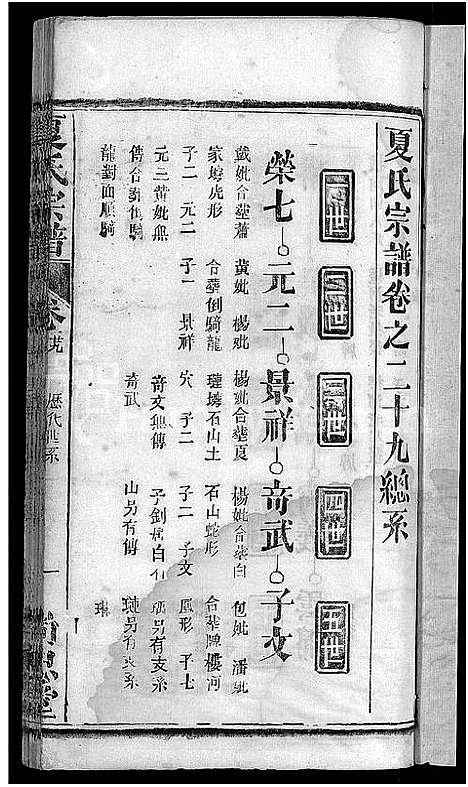 夏氏宗譜卷之二十九總系
一世 二世 三世 四世 五世
榮七 元二 景祥 奇武 子文
戴妣合塟蕭 黃妣 楊妣 楊妣合塟夏 楊妣合塟白 包妣 潘妣
家塝虎形 合塟倒騎龍 塝石山土 石山蛇形 合塟牌樓河
子二 元二 子一 景祥 穴 子二 子二 子文 鳳形 子七
元三黃妣無 奇文無傳 子釗居白石 另有支系
傳合塟倒騎 奇武 山另有傳 另有支系
龍對面順騎
夏氏宗譜 卷 歷代世系 一